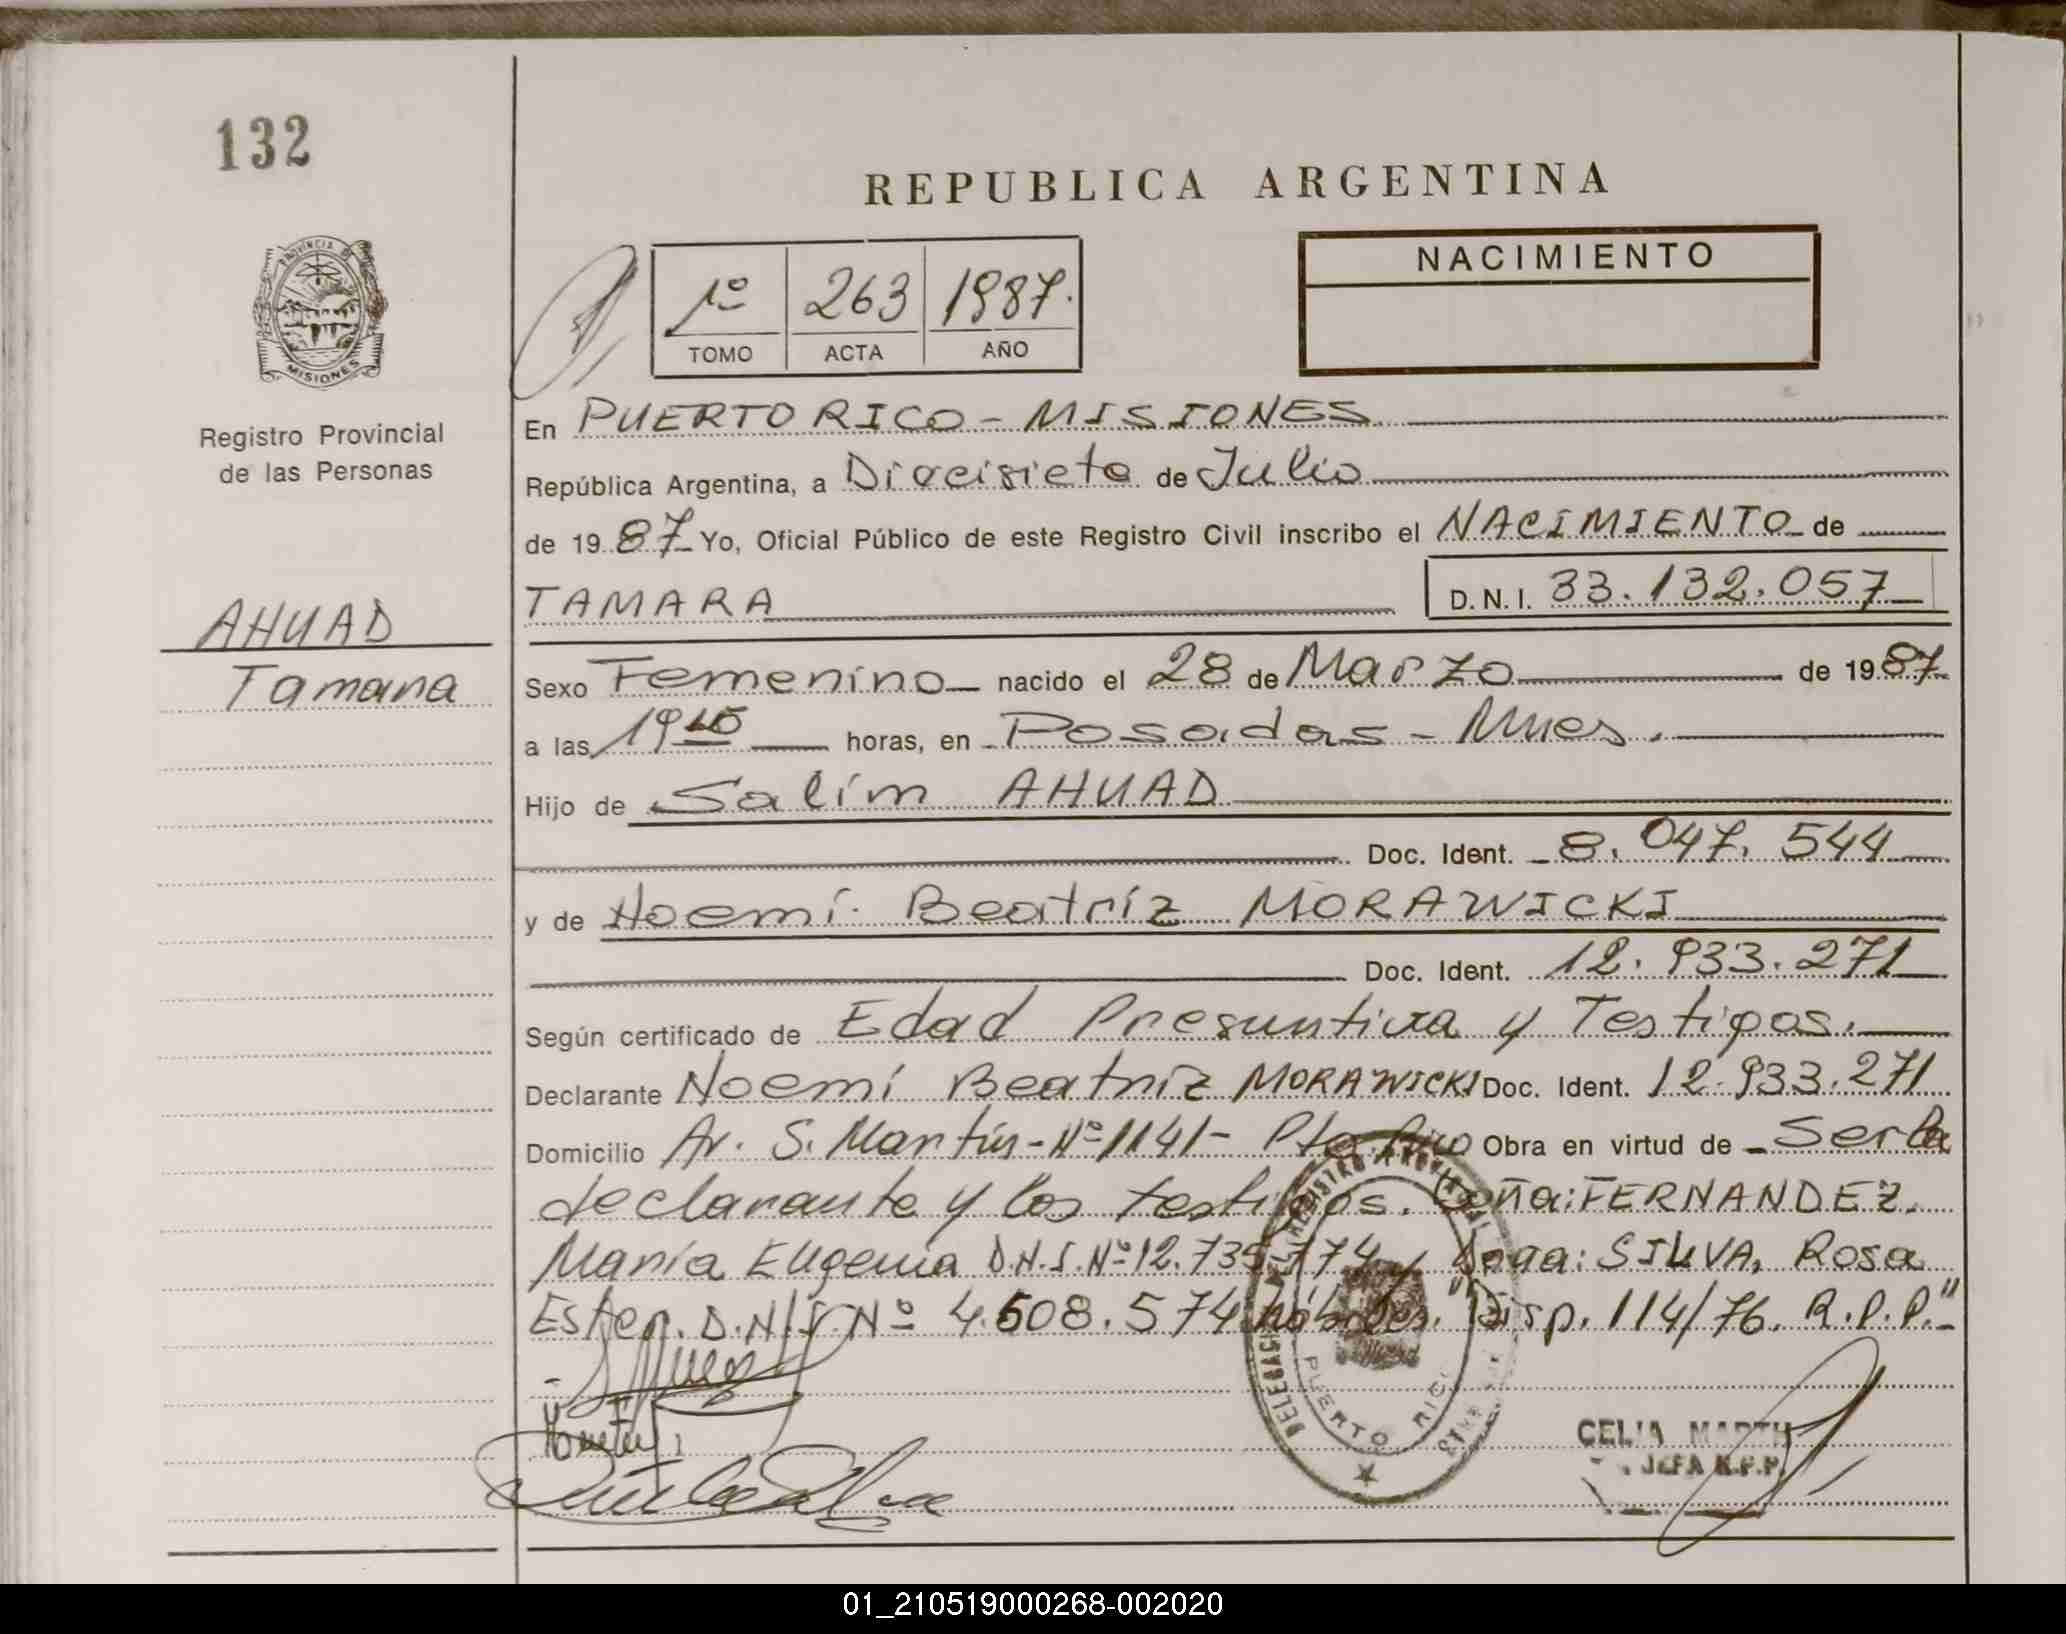 132
REPUBLICA ARGENTINA
NACIMIENTO
1º 263 1987.
TOMO ACTA AÑO
PROVINCIA DE
MISIONES
Registro Provincial
de las Personas
AHUAD
Tamara
En PUERTO RICO - MISIONES
República Argentina, a Diecisiete de Julio
de 1987 Yo, Oficial Público de este Registro Civil inscribo el NACIMIENTO de
TAMARA D.N.I. 33.132.057
Sexo Femenino nacido el 28 de Marzo de 1987
a las 19 horas, en Posadas - Mnes.
Hijo de Salim AHUAD
Doc. Ident. 8.047.544
y de Noemí Beatríz MORAWICKI
Doc. Ident. 12.933.271
Según certificado de Edad Presuntiva y Testigos.
Declarante Noemí Beatríz MORAWICKI Doc. Ident. 12.933.271
Domicilio Av. S. Martín - Nº 1141 - Pto Rico Obra en virtud de - Ser la
declarante y los testigos. Doña: FERNANDEZ.
María Eugenia D.N.I. Nº 12.735.774 y Doña: SILVA, Rosa
Ester. D.N.I. Nº 4.608.574 hábiles. "Disp. 114/76. R.P.P."
PUERTO RICO
CELIA MARTH
JEFA R.P.P.
01_210519000268-002020